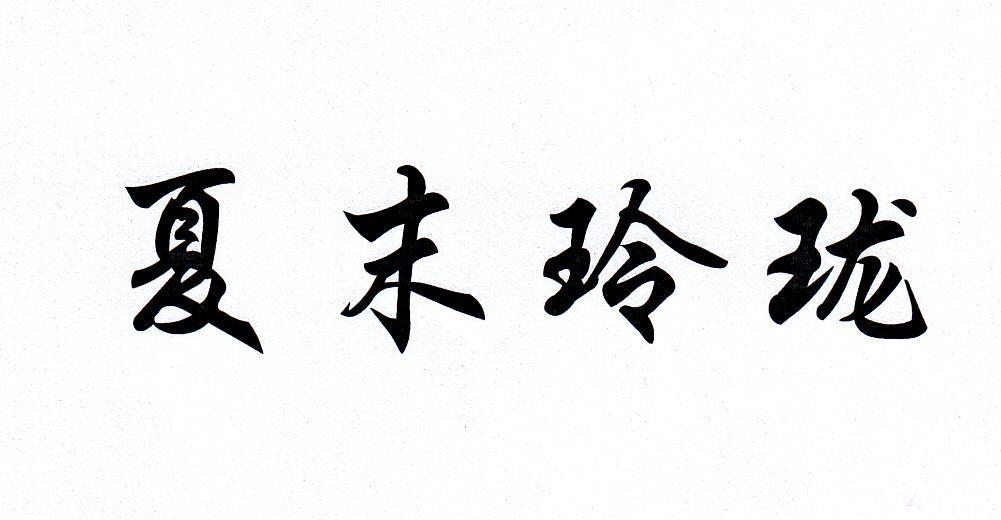 夏末玲珑